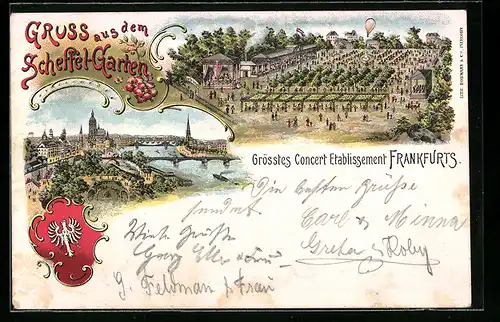 GRUSS aus dem
Scheffel-Garten.
Grösstes Concert Etablissement FRANKFURTS.
Die besten Grüsse
sendet
Carl & Minna
Greta & Roby
Viele Grüße
Georg
G. Feldman & Frau